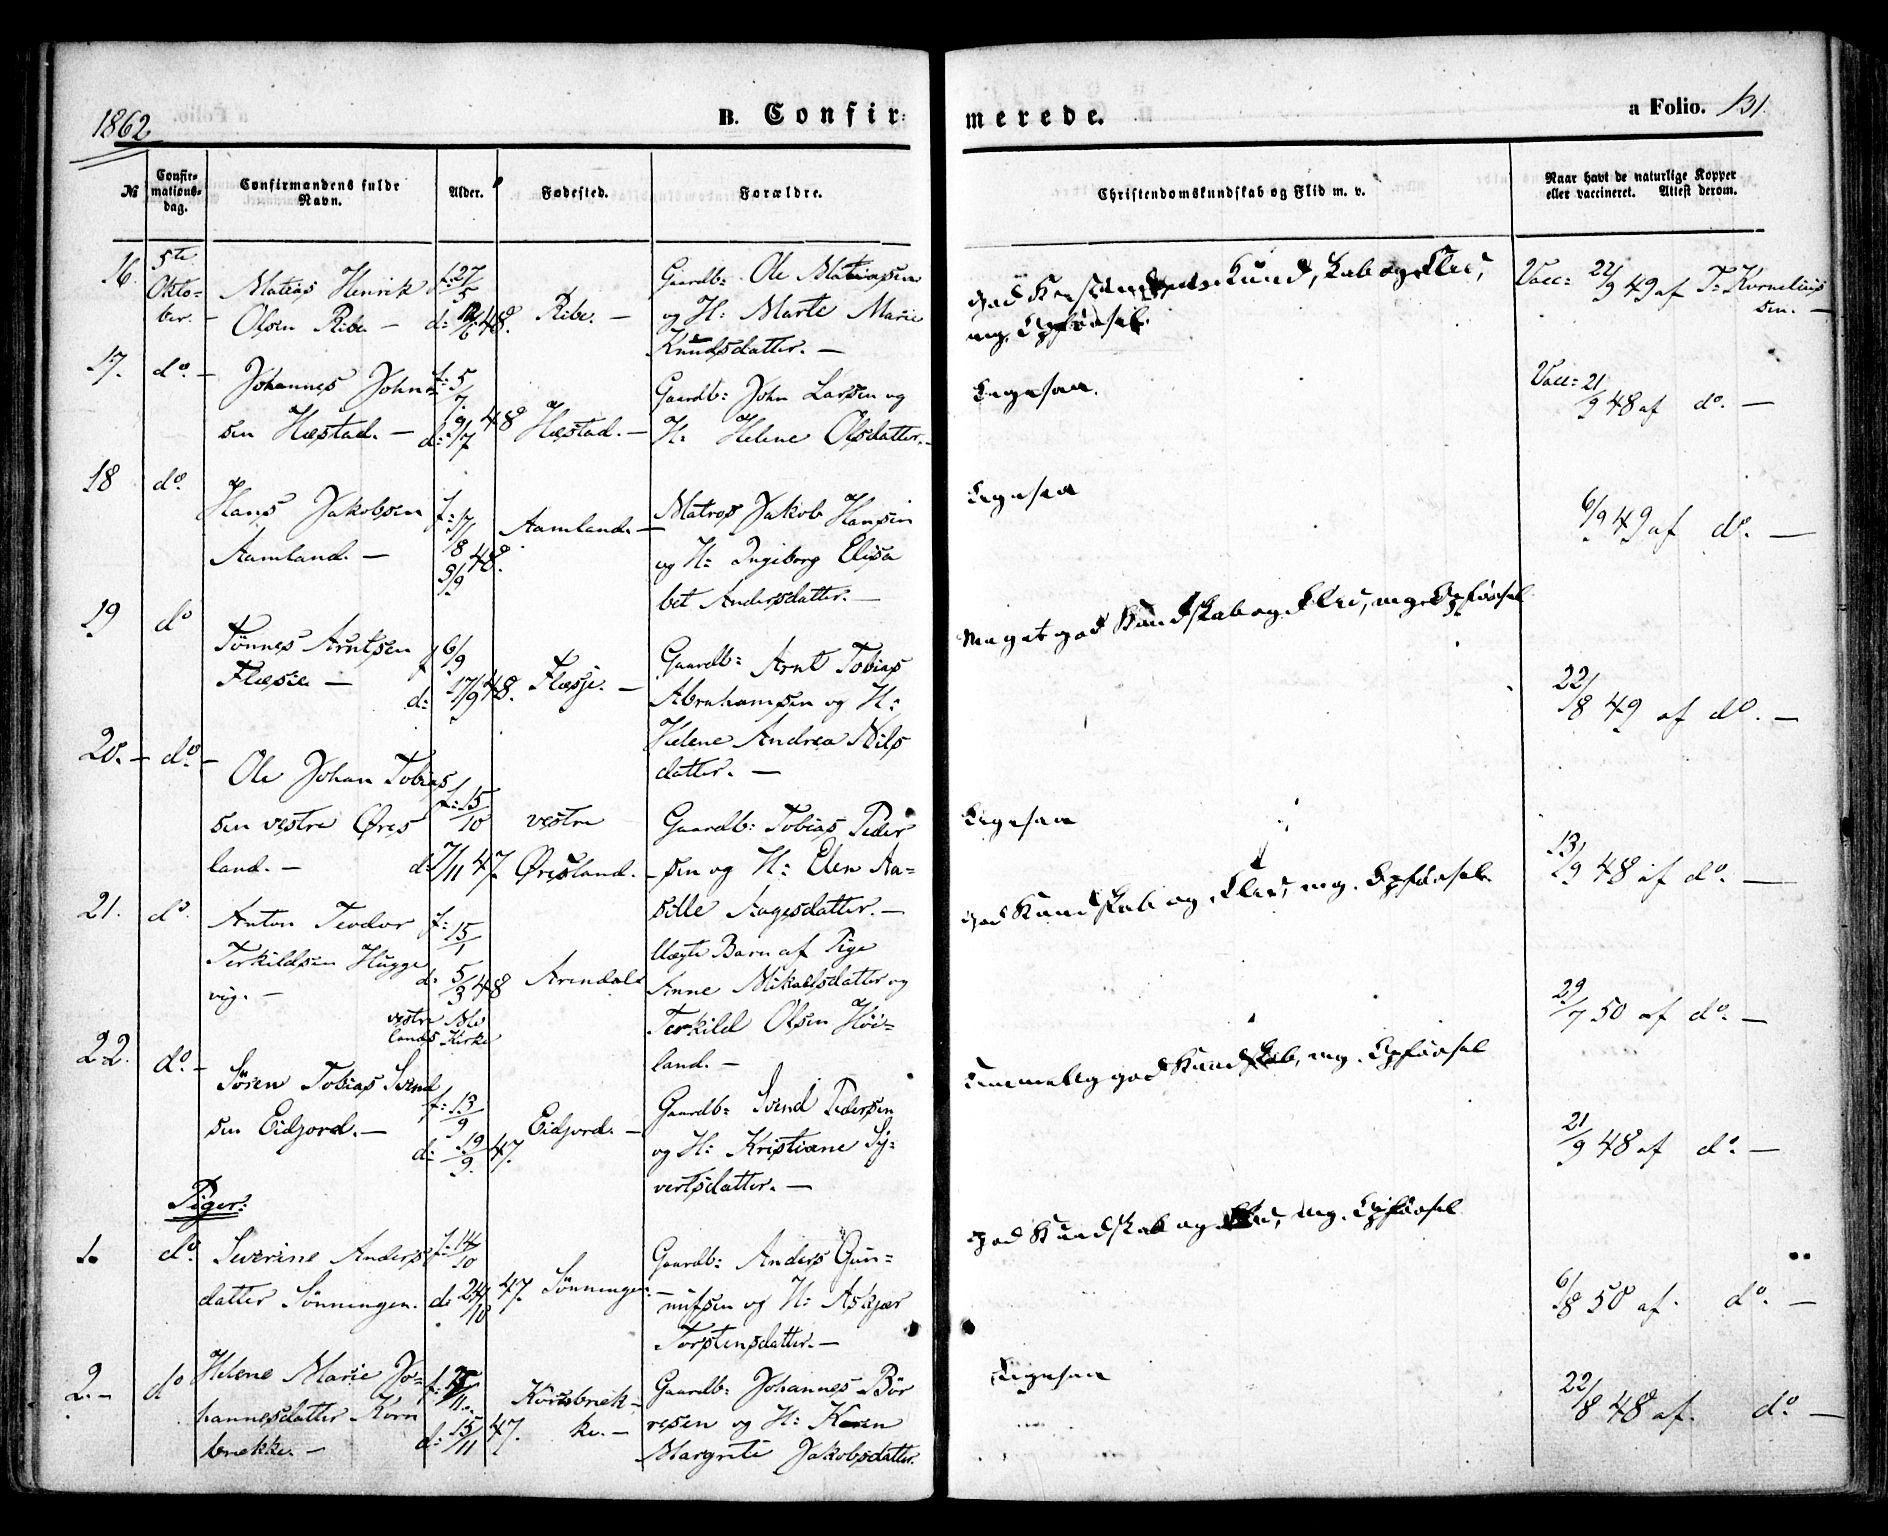 1862
B. Confir=
merede.
a Folio. 131
№
Confir-
mations-
dag.
Confirmandens fulde
Navn.
Alder.
Fødested.
Forældre.
Christendomskundskab og Flid m. v.
Naar havt de naturlige Kopper
eller vaccineret. Attest derom.
16. 5te Okto=
ber. Matias Henrik
Olsen Ribe — f: 27/5
d: 12/6 48. Ribe. — Gaardb: Ole Matiasen
og H: Marte Marie
Knudsdatter. —
god Kundskab og Flid,
mg. Opførsel.
Vacc: 22/9 49 af T. Kornelius
sen. —
17. do. — Johannes John=
sen Hæstad. — f: 5/7
d: 9/7 48 Hæstad. — Gaardb: John Larsen og
H: Helene Olsdatter. —
Ligesaa.
Vacc: 21/9 48 af do. —
18 do. Hans Jakobsen
Aamland. — f: 17/8
3/9 48. Aamland. — Matros Jakob Hansen
og H: Ingeborg Elisa
bet Andersdatter. —
Ligesaa
6/9 49 af do. —
19 do Tønnes Arntsen
Flæsie — f 6/9
d: 17/9 48. Flæsje. — Gaardb: Arnt Tobias
Abrahamsen og H:
Helene Andrea Nils
datter. —
Meget god Kundskab og Flid, mg. Opførsel
22/8 49 af do. —
20. — do. — Ole Johan Tobias
sen vestre Øres
land. — f: 15/10
d: 7/11 47. vestre
Øresland. — Gaardb: Tobias Peder
sen og H: Elen Aa=
sille Aagesdatter. —
Ligesaa
13/9 48 af do. —
21. do. Anton Teodor
Terkildsen Hugge
vig. — f: 15/1
d: 5/3 48
vestre Mo
lands Kirke
Arendal Uægte Barn af Pige
Anne Mikaelsdatter og
Terkild Olsen Høi=
land. —
god Kundskab og Flid, mg. Opførsel.
29/7 50 af do. —
22. do. — Søren Tobias Svend
sen Eidjord. — f: 13/9
d: 19/9. 47. Eidjord. — Gaardb: Svend Pedersen
og H: Kristiane Sy=
vertsdatter. —
Temmelig god Kundskab, mg. Opførsel
21/9 48 af do. —
Piger:
1. do. Severine Anders
datter Sønningen. f: 14/10
d: 24/10 47. Sønningen. — Gaardb: Anders Gun=
nufsen og H: Askjær
Torstensdatter. —
god Kundskab og Flid, mg. Opførsel
6/8 50 af. do. —
2. — do Helene Marie Jo=
hannesdatter Korn
brække. —
d: 15/11 47. Kornbræk=
ke. — Gaardb: Johannes Bør
resen og H: Karen
Margrete Jakobsdatter.
Ligesaa
22/8 48 af. do. —